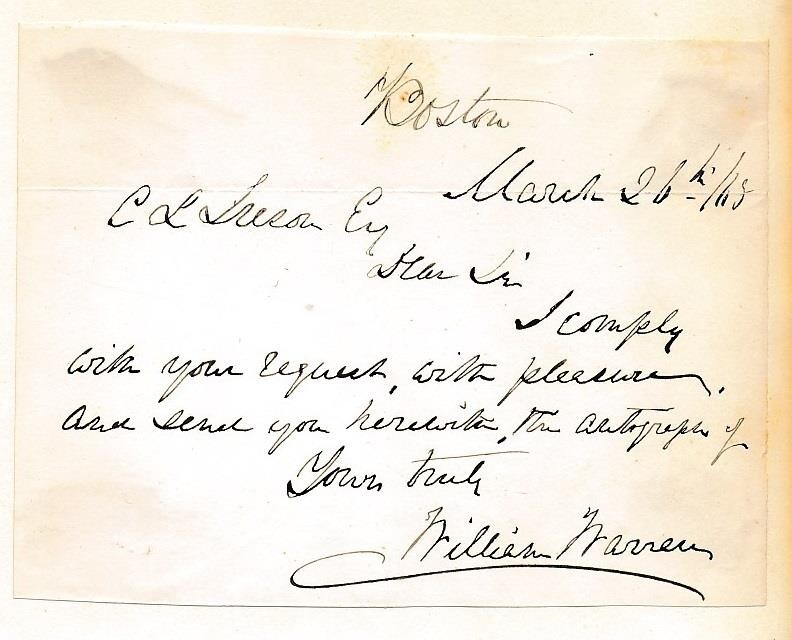 Boston
March 26th/68
C L Ireson Esq
Dear Sir
I comply
with your request, with pleasure,
and send you herewith, the autograph of
Yours truly
William Warren